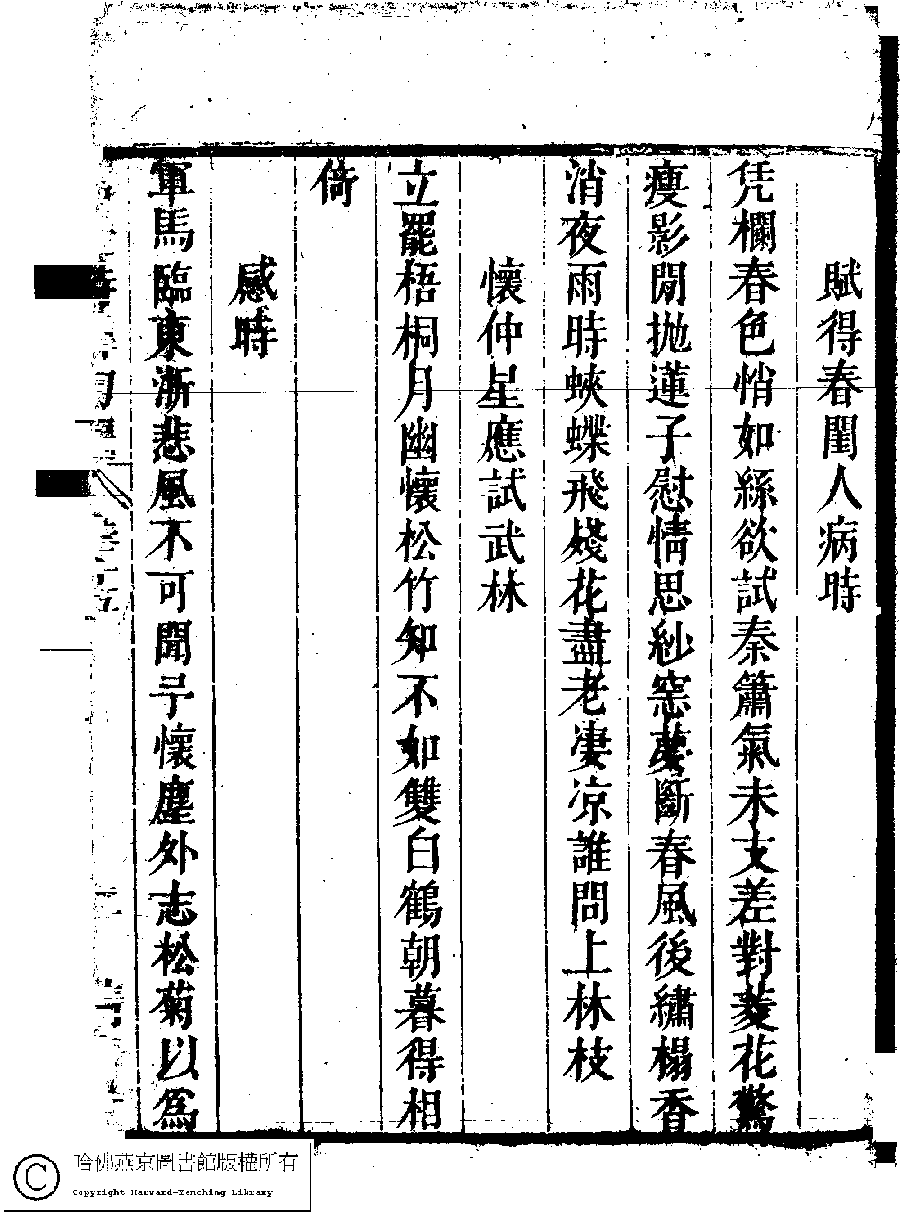 賦得春閨人病時
凭欄春色悄如絲欲試秦簫氣未支差對菱花驚
瘦影閒拋蓮子慰情思紗窓夢斷春風後繡榻香
消夜雨時蛺蝶飛殘花盡老淒凉誰問上林枝
懷仲星應試武林
立罷梧桐月幽懷松竹知不如雙白鶴朝暮得相
倚
感時
軍馬臨東浙悲風不可聞予懷塵外志松菊以爲
哈佛燕京圖書館版權所有
Copyright Harvard-Yenching Library